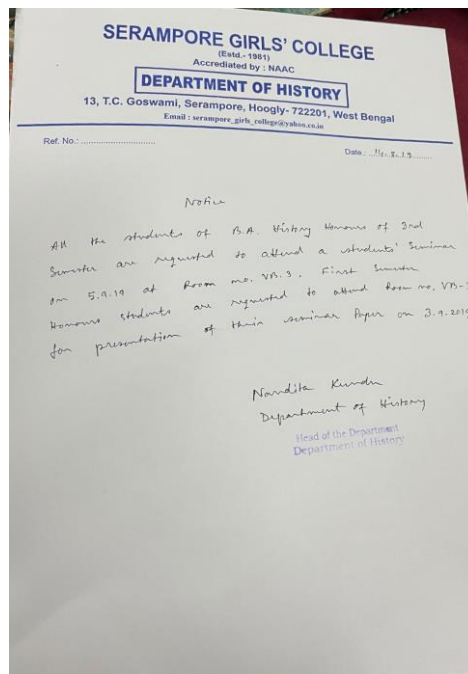 SERAMPORE GIRLS' COLLEGE
(Estd.- 1981)
Accrediated by : NAAC
DEPARTMENT OF HISTORY
13, T.C. Goswami, Serampore, Hoogly- 722201, West Bengal
Email : serampore_girls_college@yahoo.co.in
Ref. No.: ..............................
Date : ..16.8.19........
Notice
All the students of B.A. History Honours of 3rd
Semester are requested to attend a students' Seminar
on 5.9.19 at Room no. VB.3. First Semester
Honours students are requested to attend Room no. VB-
for presentation of their seminar Paper on 3.9.2019
Nandita Kundu
Department of History
Head of the Department
Department of History